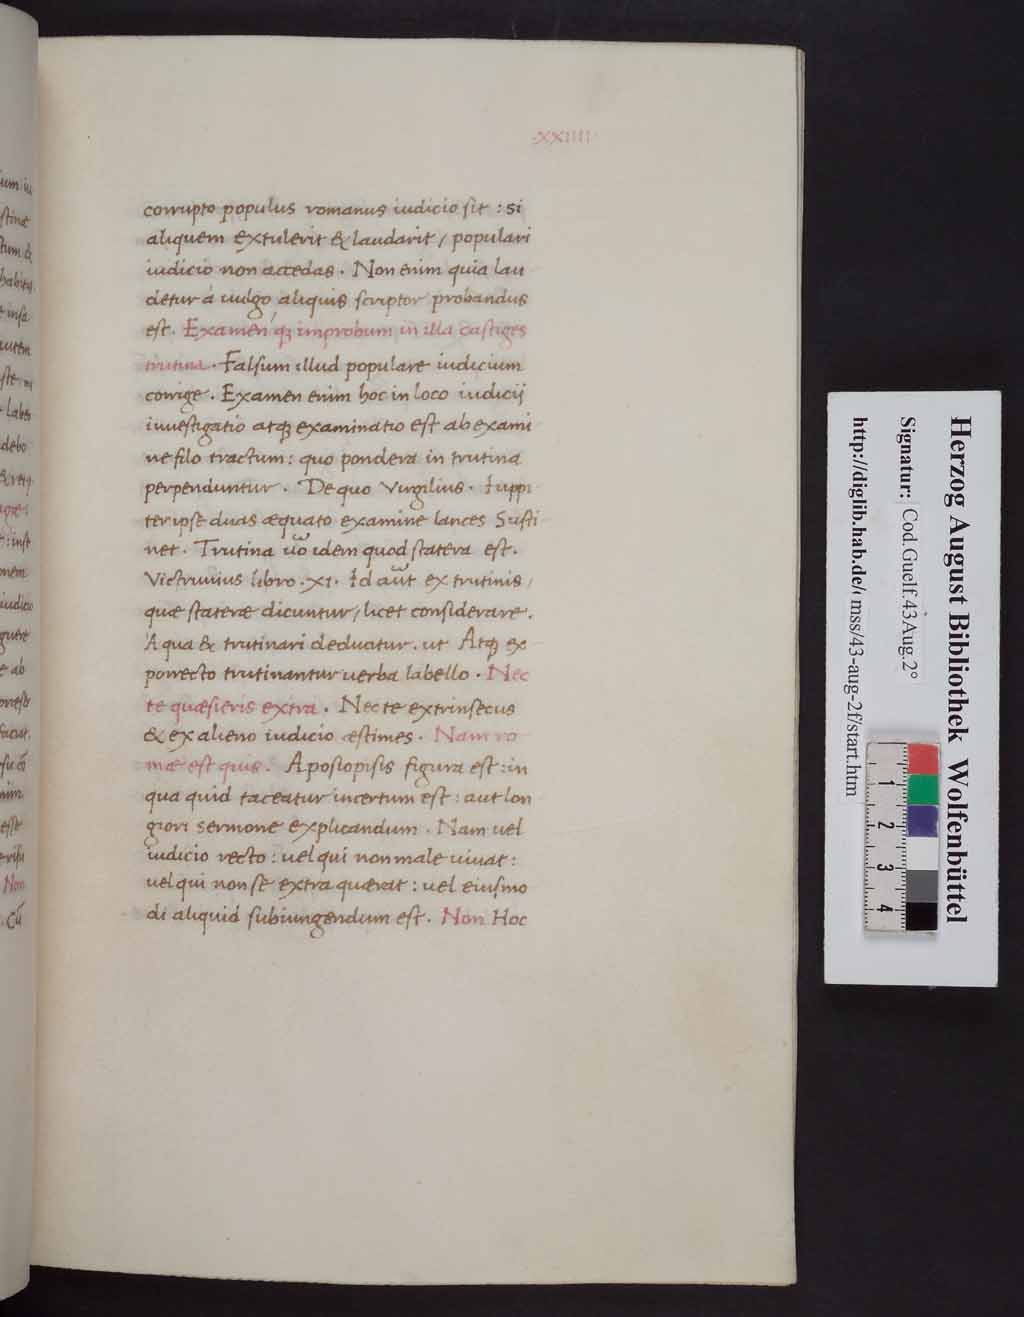 ·XXIIII·
corrupto populus romanus iudicio sit : si
aliquem extulerit & laudarit / populari
iudicio non accedas . Non enim quia lau
detur á uulgo aliquis scriptor probandus
est . Examen q; improbum in illa castiges
trutina . Falsum illud populare iudicium
corrige . Examen enim hoc in loco iudicij
inuestigatio atq; examinatio est ab exami
ne filo tractum : quo pondera in trutina
perpenduntur . De quo Virgilius . Iuppi
ter ipse duas æquato examine lances Susti
net . Trutina uo᷉ idem quod statera est .
Victruuius libro .XI. Id aut᷉ ex trutinis /
quæ stateræ dicuntur / licet considerare .
A qua & trutinari deducitur . ut Atq; ex
porrecto trutinantur uerba labello . Nec
te quæsieris extra . Nec te extrinsecus
& ex alieno iudicio æstimes . Nam ro
mæ est quis . Aposiopisis figura est : in
qua quid taceatur incertum est : aut lon
giori sermone explicandum . Nam uel
iudicio recto : uel qui non male uiuat :
uel qui non se extra quærat : uel eiusmo
di aliquid subiungendum est . Non Hoc
Herzog August Bibliothek Wolfenbüttel
Signatur: Cod.Guelf.43 Aug.2°
http://diglib.hab.de/ mss/43-aug-2f/start.htm
1 2 3 4